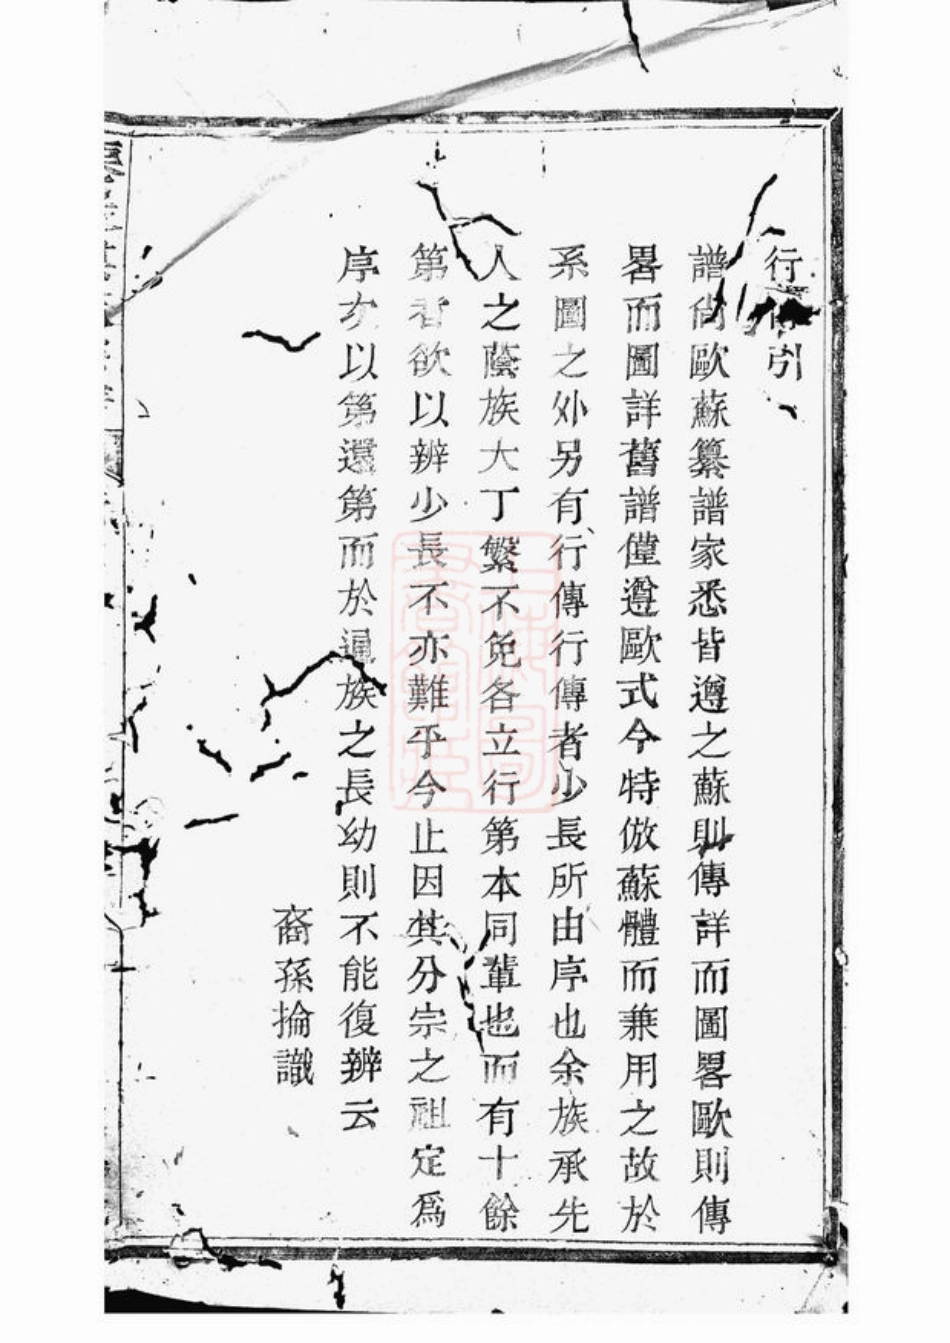 行傳引
譜尚歐蘇纂譜家悉皆遵之蘇則傳詳而圖畧歐則傳
畧而圖詳舊譜僅遵歐式今特倣蘇體而兼用之故於
系圖之外另有行傳行傳者少長所由序也余族承先
人之蔭族大丁繁不免各立行第本同輩也而有十餘
第者欲以辨少長不亦難乎今止因其分宗之祖定爲
序次以第還第而於通族之長幼則不能復辨云
裔孫掄識